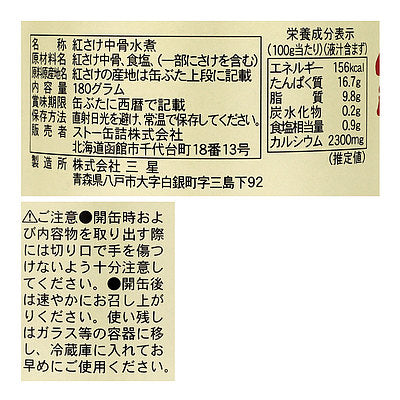 名称 紅さけ中骨水煮
原材料名 紅さけ中骨、食塩、(一部にさけを含む)
原料原産地名 紅さけの産地は缶ぶた上段に記載
内容量 180グラム
賞味期限 缶ぶたに西暦で記載
保存方法 直射日光を避け、常温で保存してください。
販売者 ストー缶詰株式会社
北海道函館市千代台町18番13号
製造所 株式会社 三星
青森県八戸市大字白銀町字三島下92
栄養成分表示
(100g当たり)(液汁含まず)
エネルギー 156kcal
たんぱく質 16.7g
脂質 9.8g
炭水化物 0.2g
食塩相当量 0.9g
カルシウム 2300mg
(推定値)
⚠ご注意●開缶時およ
び内容物を取り出す際
には切り口で手を傷つ
けないよう十分注意し
てください。●開缶後
は速やかにお召し上が
りください。使い残し
はガラス等の容器に移
し、冷蔵庫に入れてお
早めにご使用ください。